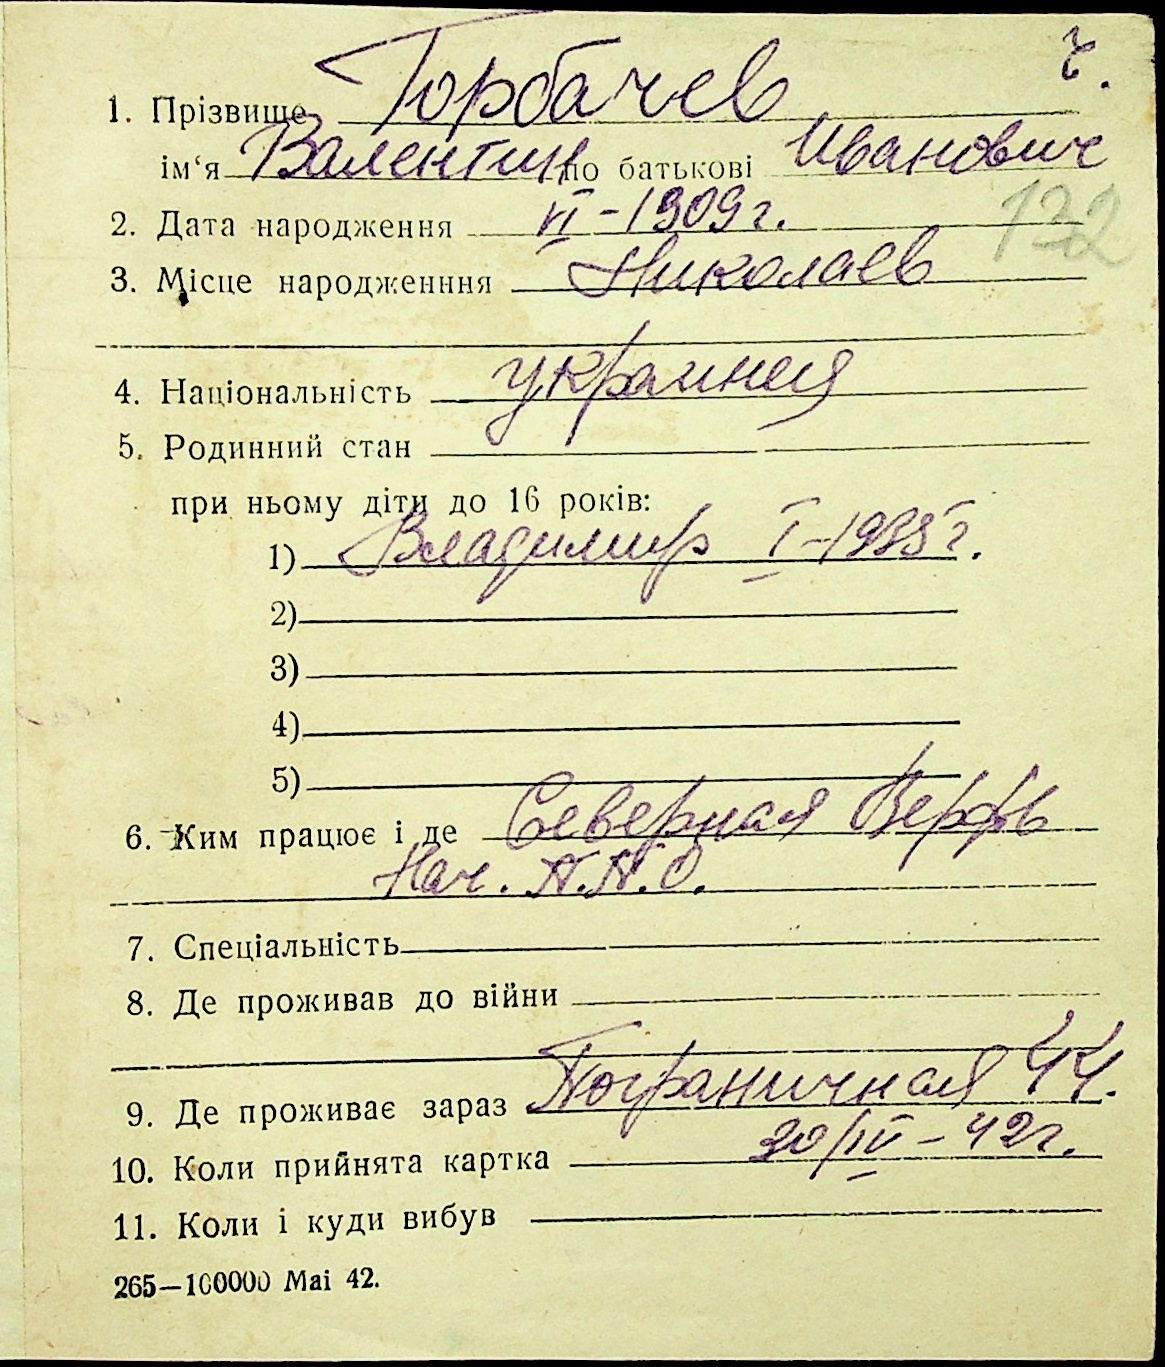 ч.
1. Прізвище Горбачев
ім‘я Валентин по батькові Иванович
2. Дата народження VI – 1909 г.
172
3. Місце народженння Николаев
4. Національність украинец
5. Родинний стан
при ньому діти до 16 років:
1) Владимир I – 1935 г.
2)
3)
4)
5)
6. Ким працює і де Северная Верфь
Нач. П.П.О.
7. Спеціальність
8. Де проживав до війни
9. Де проживає зараз Пограничная 44.
10. Коли прийнята картка 30/IV – 42 г.
11. Коли і куди вибув
265—100000 Mai 42.